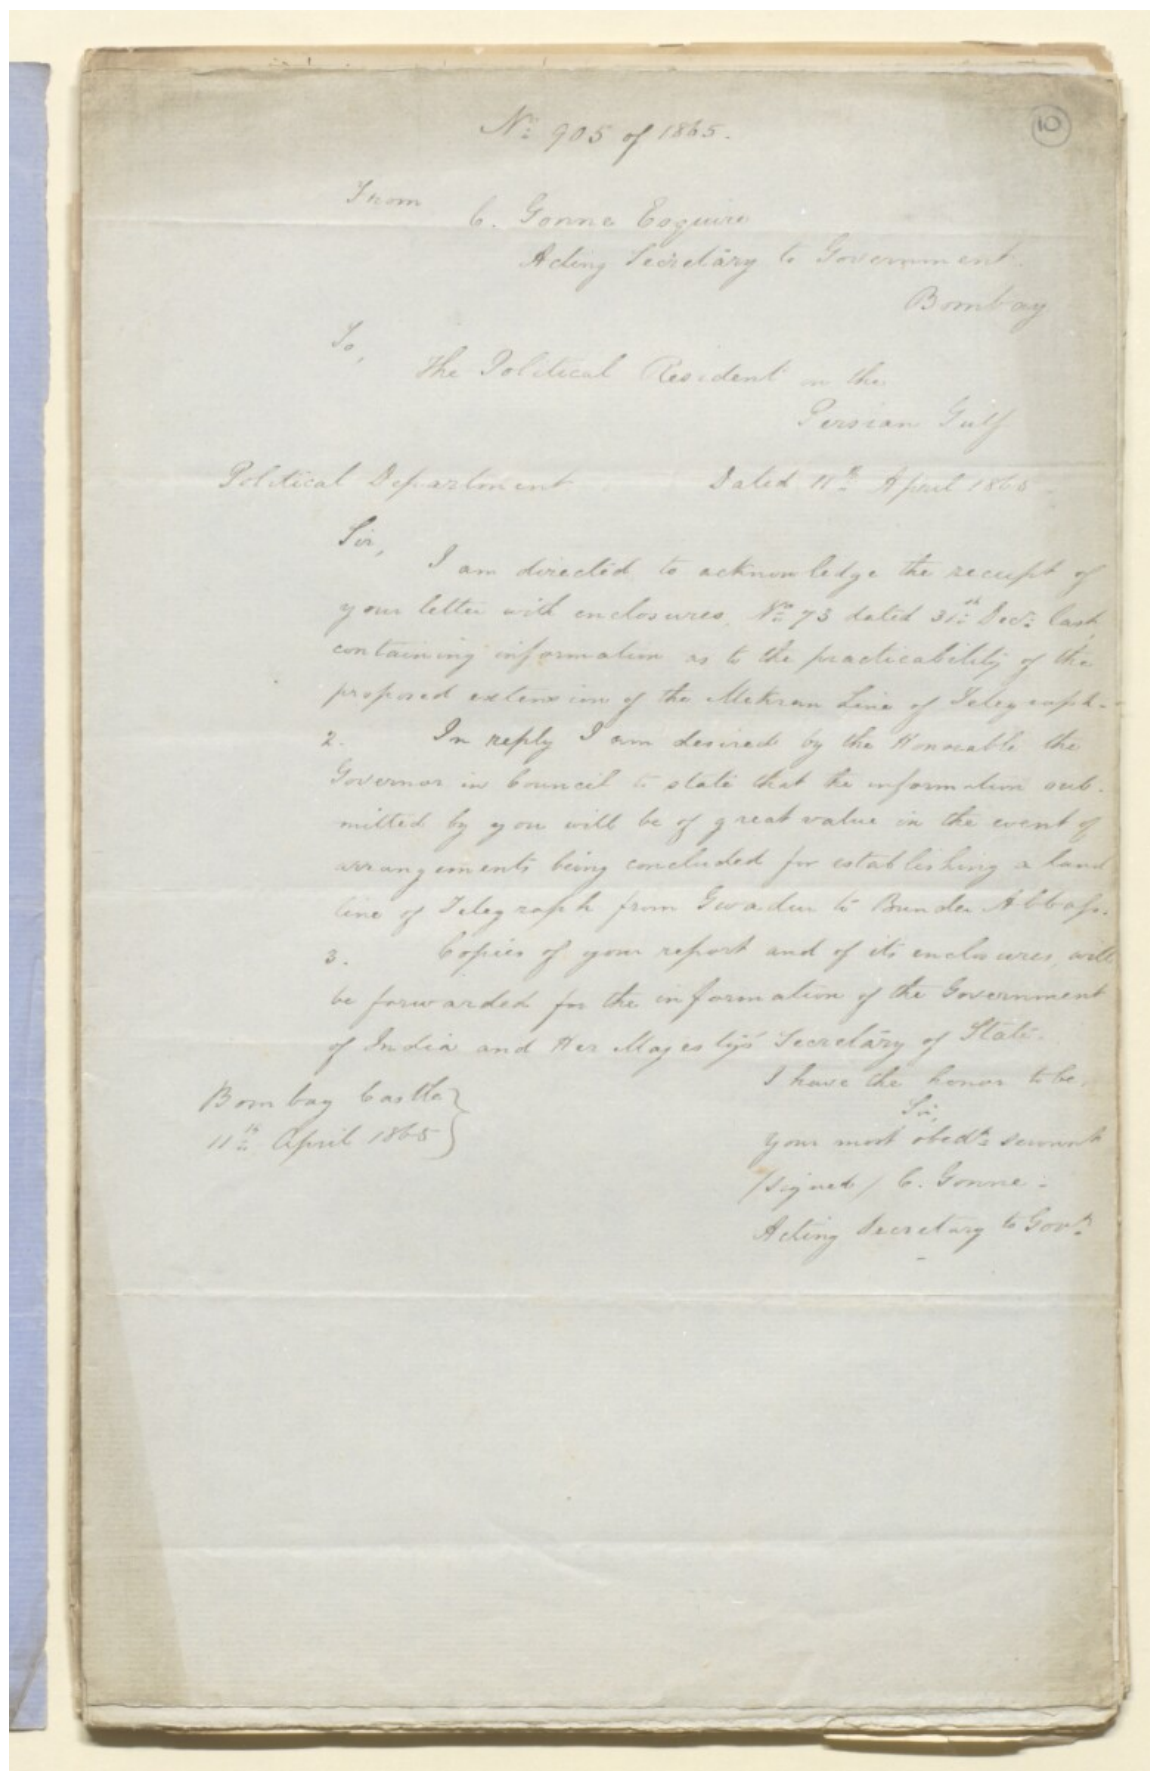 10
No. 905 of 1865.
From
C. Gonne Esquire
Acting Secretary to Government.
Bombay
To,
The Political Resident in the
Persian Gulf
Political Department Dated 11th April 1865
Sir,
I am directed to acknowledge the receipt of
your letter with enclosures, No. 73 dated 31st Decr. last,
containing information as to the practicability of the
proposed extension of the Mekran Line of Telegraph.-
2. In reply I am desired by the Honorable the
Governor in Council to state that the information sub-
mitted by you will be of great value in the event of
arrangements being concluded for establishing a land
line of Telegraph from Gwadur to Bunder Abbass.
3. Copies of your report and of its enclosures, will
be forwarded for the information of the Government
of India and Her Majesty's Secretary of State.
I have the honor to be,
Sir,
Your most obedt. servant
/signed/ C. Gonne.
Acting Secretary to Govt.
Bombay Castle }
11th April 1865 }